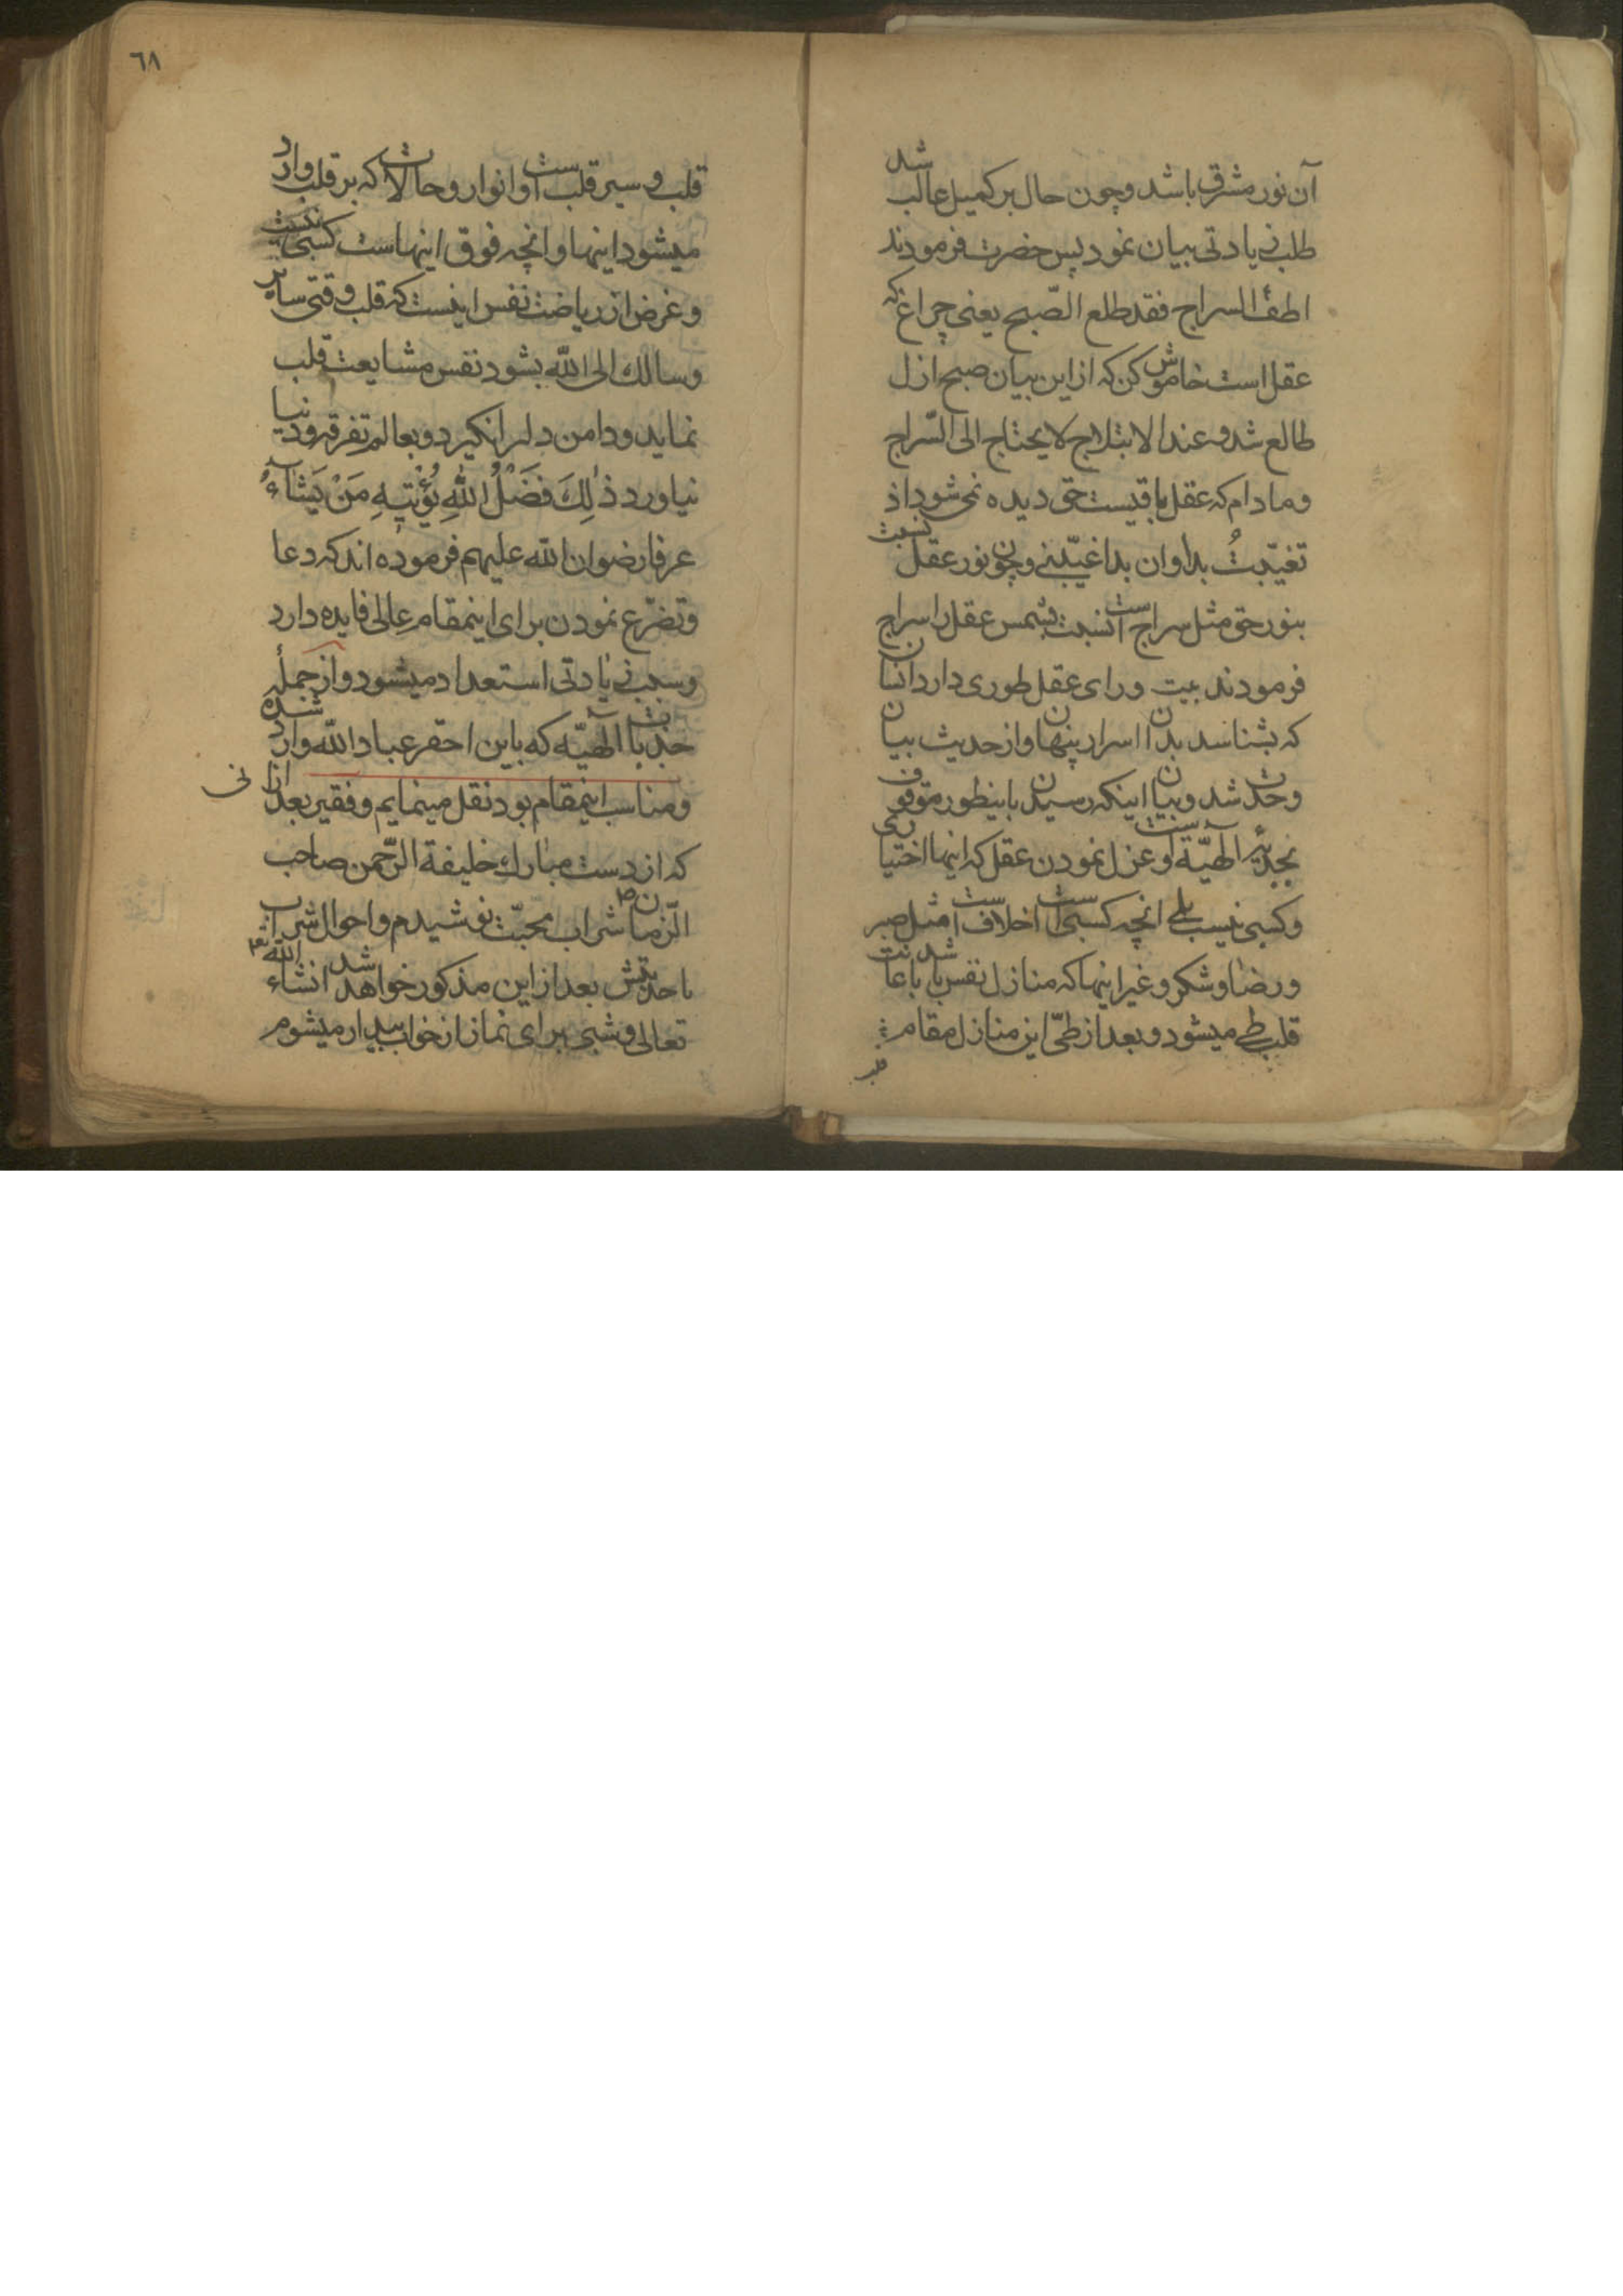 آن نور مشرق باشد و چون حال بر كميل غالب شد
طلب زيادتی بيان نمود پس حضرت فرمودند
اطفأ السراج فقد طلع الصّبح يعنی چراغ كه
عقل است خاموش كن كه از اين بيان صبح ازل
طالع شد و عند الابتلاج لا يحتاج الی السّراج
و مادام كه عقل باقيست حق ديده نمی شود اذ
تغيّبتُ بدا و ان بدا غيّبنی و چون نور عقل نسبت
بنور حق مثل سراج است نسبت بشمس عقل را سراج
فرمودند بيت ورای عقل طوری دارد انسان
كه بشناسد بدان اسرار پنهان و از حديث بيان
وحدت شد و بيان اينكه رسيدن باينطور موقوف
بجذبهٔ الٓهيّه است و عزل نمودن عقل كه اينها اختياری
و كسبی نيست بلی انچه كسبی است اخلاق است مثل صبر
و رضا و شكر و غير اينها كه منازل نفس باشد با عانت
قلب طی ميشود و بعد از طیّ اين منازل مقام
قلب
٦٨
قلب و سير قلب است و انوار و حالات كه بر قلب وارد
ميشود اينها و انچه فوق اينهاست كسبی نيست
و غرض از رياضت نفس اينست كه قلب وقتی ساير
و سالك الی اللّه بشود نفس مشايعت قلب
نمايد و دامن دلرا نگيرد و بعالم تفرقه و دنيا
نياورد ذٰلِكَ فَضْلُ اللّٰهِ يُؤْتِيهِ مَنْ يَشٰاءُ
عرفا رضوان اللّه عليهم فرموده اند كه دعا
و تضرّع نمودن برای اينمقام عالی فايده دارد
و سبب زيادتی استعداد ميشود و از جملهٔ
جذبات الٓهيّه كه باين احقر عباد اللّه وارد شده
و مناسب اينمقام بود نقل مينمايم و فقير بعد ازانی
كه از دست مبارك خليفة الرّحمن صاحب
الزّمان ص شراب محبّت نوشيدم و احوال شراب
با حديثش بعد از اين مذكور خواهد شد انشاء اللّه تعا
تعالی و شبی برای نماز از خواب بيدار ميشوم